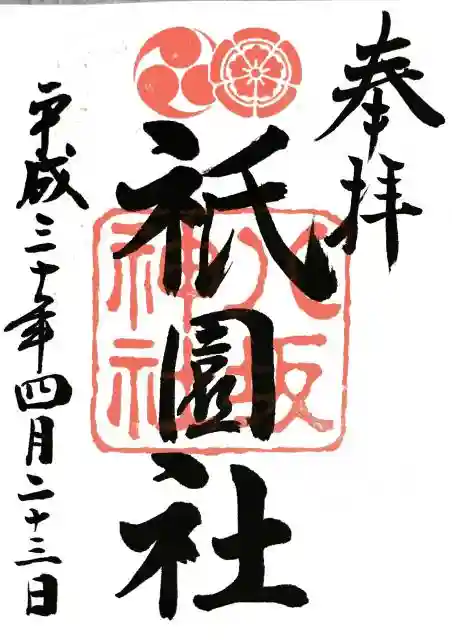 奉拝
祇園社
八坂
神社
平成三十年四月二十三日